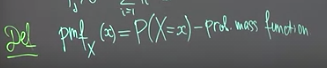 Def pmf_X (x) = P(X=x) - prob. mass function